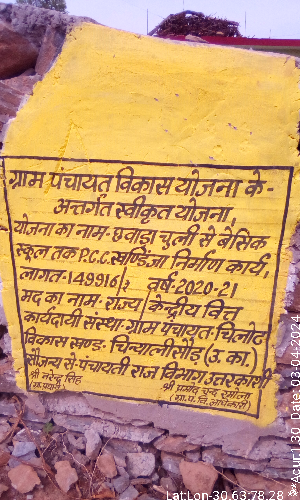 ग्राम पंचायत विकास योजना के-
अन्तर्गत स्वीकृत योजना,
योजना का नाम- छवाड़ा चुली से बेसिक
स्कूल तक P.C.C. खण्डेंजा निर्माण कार्य,
लागत-149916/: वर्ष-2020-21
मद का नाम- राज्य/केन्द्रीय वित्त
कार्यदायी संस्था- ग्राम पंचायत- चिनोट
विकास खण्ड- चिन्यालीसौड़ (उ.का.)
सौजन्य से- पंचायती राज विभाग, उत्तरकाशी
श्री नरेन्द्र सिंह श्री प्रमोद चन्द्र
(ग्रा.प्रधान) (ग्रा.पं.वि.अधिकारी)
LatLon-30.63,78.28
Acur:1.30 Date 03-04-2024